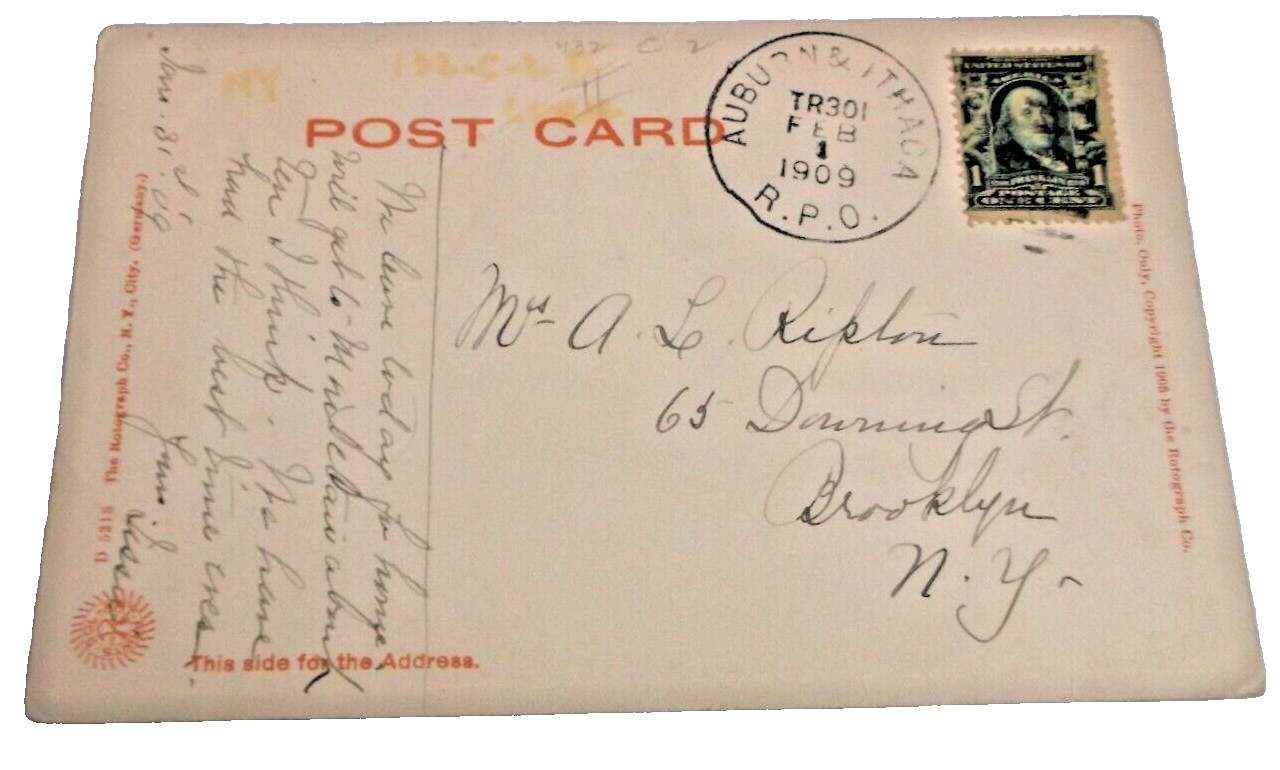 '132 C 2
II
POST CARD
AUBURN & ITHACA
TR301
FEB
1
1909
R.P.O.
UNITED STATES OF
AMERICA
1 FRANKLIN 1
POSTAGE
ONE CENT
Jan. 31st. 09
We leave today for home
will get to Middletown about
ten I think. We have
had the best time ever.
Yours
Mrs A. L. Ripton
65 Downing St.
Brooklyn
N. Y.
D 5218 The Rotograph Co., N. Y., City. (Germany.)
This side for the Address.
Photo, Only, Copyright 1905 by the Rotograph Co.